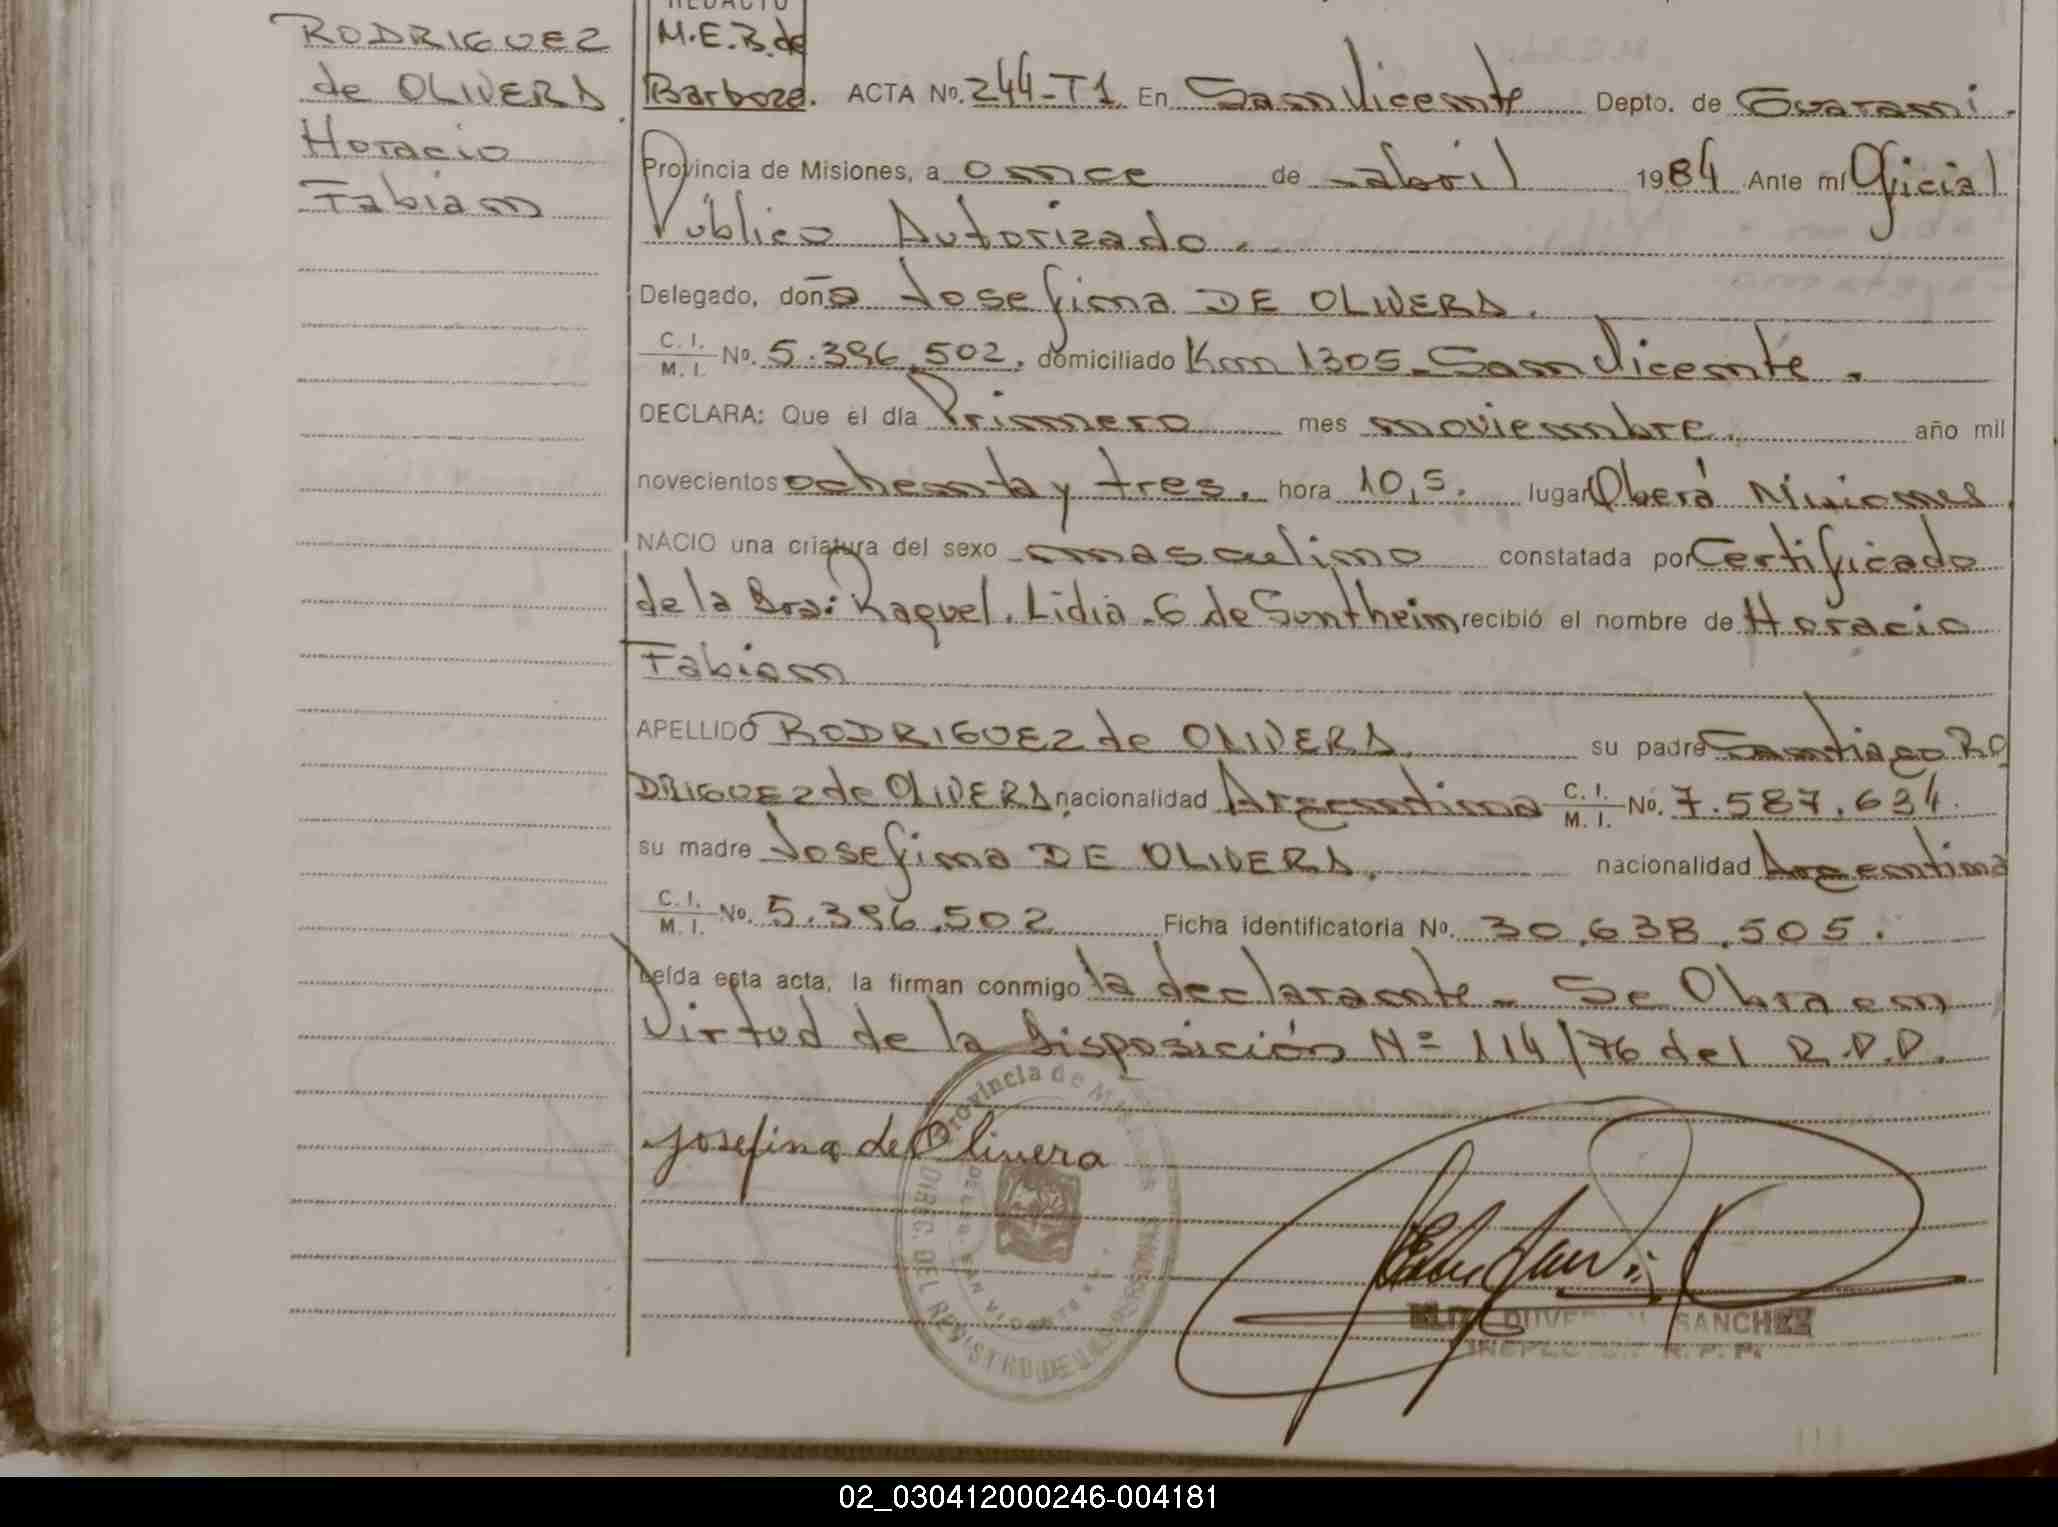 RODRIGUEZ
de OLIVERA
Horacio
Fabian
REDACTO
M.E.B. de
Barboza.
ACTA Nº. 244-T1 En San Vicente Depto. de Guarani.
Provincia de Misiones, a once de abril 1984 Ante mí Oficial
Público Autorizado.
Delegado, doña Josefina DE OLIVERA.
C. I. / M. I. Nº. 5.396.502. domiciliado Km 1305 - San Vicente.
DECLARA: Que el día Primero mes noviembre. año mil
novecientos ochenta y tres. hora 10,5. lugar Oberá Misiones
NACIO una criatura del sexo masculino constatada por Certificado
de la Dra: Raquel. Lidia. G de Sontheim recibió el nombre de Horacio
Fabian
APELLIDO RODRIGUEZ de OLIVERA. su padre Santiago RO
DRIGUEZ de OLIVERA nacionalidad Argentina C. I. / M. I. Nº. 7.587.634.
su madre Josefina DE OLIVERA. nacionalidad Argentina
C. I. / M. I. Nº. 5.396.502 Ficha identificatoria Nº. 30.638.505.
Leída esta acta, la firman conmigo la declarante - Se Obra en
Virtud de la Disposición Nº 114/76 del R.P.P.
Josefina de Olivera
Provincia de Misiones
DIREC. DEL REGISTRO DE LAS PERSONAS
SAN VICENTE
SANCHEZ
R. P. P.
02_030412000246-004181